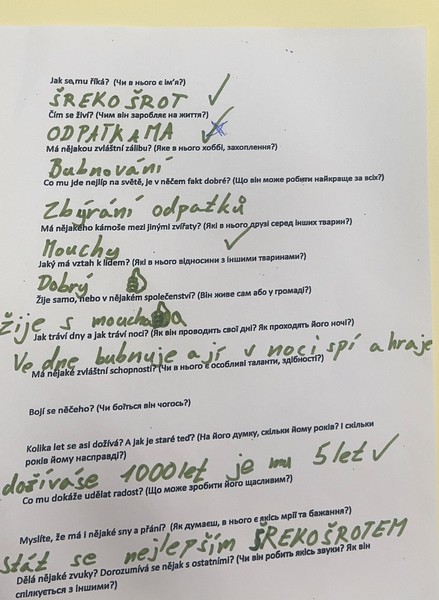 Jak se mu říká? (Чи в нього є ім'я?)
ŠREKO ŠROT
Čím se živí? (Чим він заробляє на життя?)
ODPATKAMA
Má nějakou zvláštní zálibu? (Яке в нього хоббі, захоплення?)
Bubnování
Co mu jde nejlíp na světě, je v něčem fakt dobré? (Що він може робити найкраще за всіх?)
Zbýrání odpatků
Má nějakého kámoše mezi jinými zvířaty? (Які в нього друзі серед інших тварин?)
Mouchy
Jaký má vztah k lidem? (Які в нього відносини з іншими тваринами?)
Dobrý
Žije samo, nebo v nějakém společenství? (Він живе сам або у громаді?)
Žije s mouchama
Jak tráví dny a jak tráví noci? (Як він проводить свої дні? Як проходять його ночі?)
Ve dne bubnuje a jí v noci spí a hraje
Má nějaké zvláštní schopnosti? (Чи в нього є особливі таланти, здібності?)
Bojí se něčeho? (Чи боїться він чогось?)
Kolika let se asi dožívá? A jak je staré teď? (На його думку, скільки йому років? І скільки
років йому насправді?)
dožíváse 1000 let je mu 5 let
Co mu dokáže udělat radost? (Що може зробити його щасливим?)
Myslíte, že má i nějaké sny a přání? (Як думаєш, в нього є якісь мрії та бажання?)
stát se nejlepším ŠREKOŠROTEM
Dělá nějaké zvuky? Dorozumívá se nějak s ostatními? (Чи він робить якісь звуки? Як він
спілкується з іншими?)